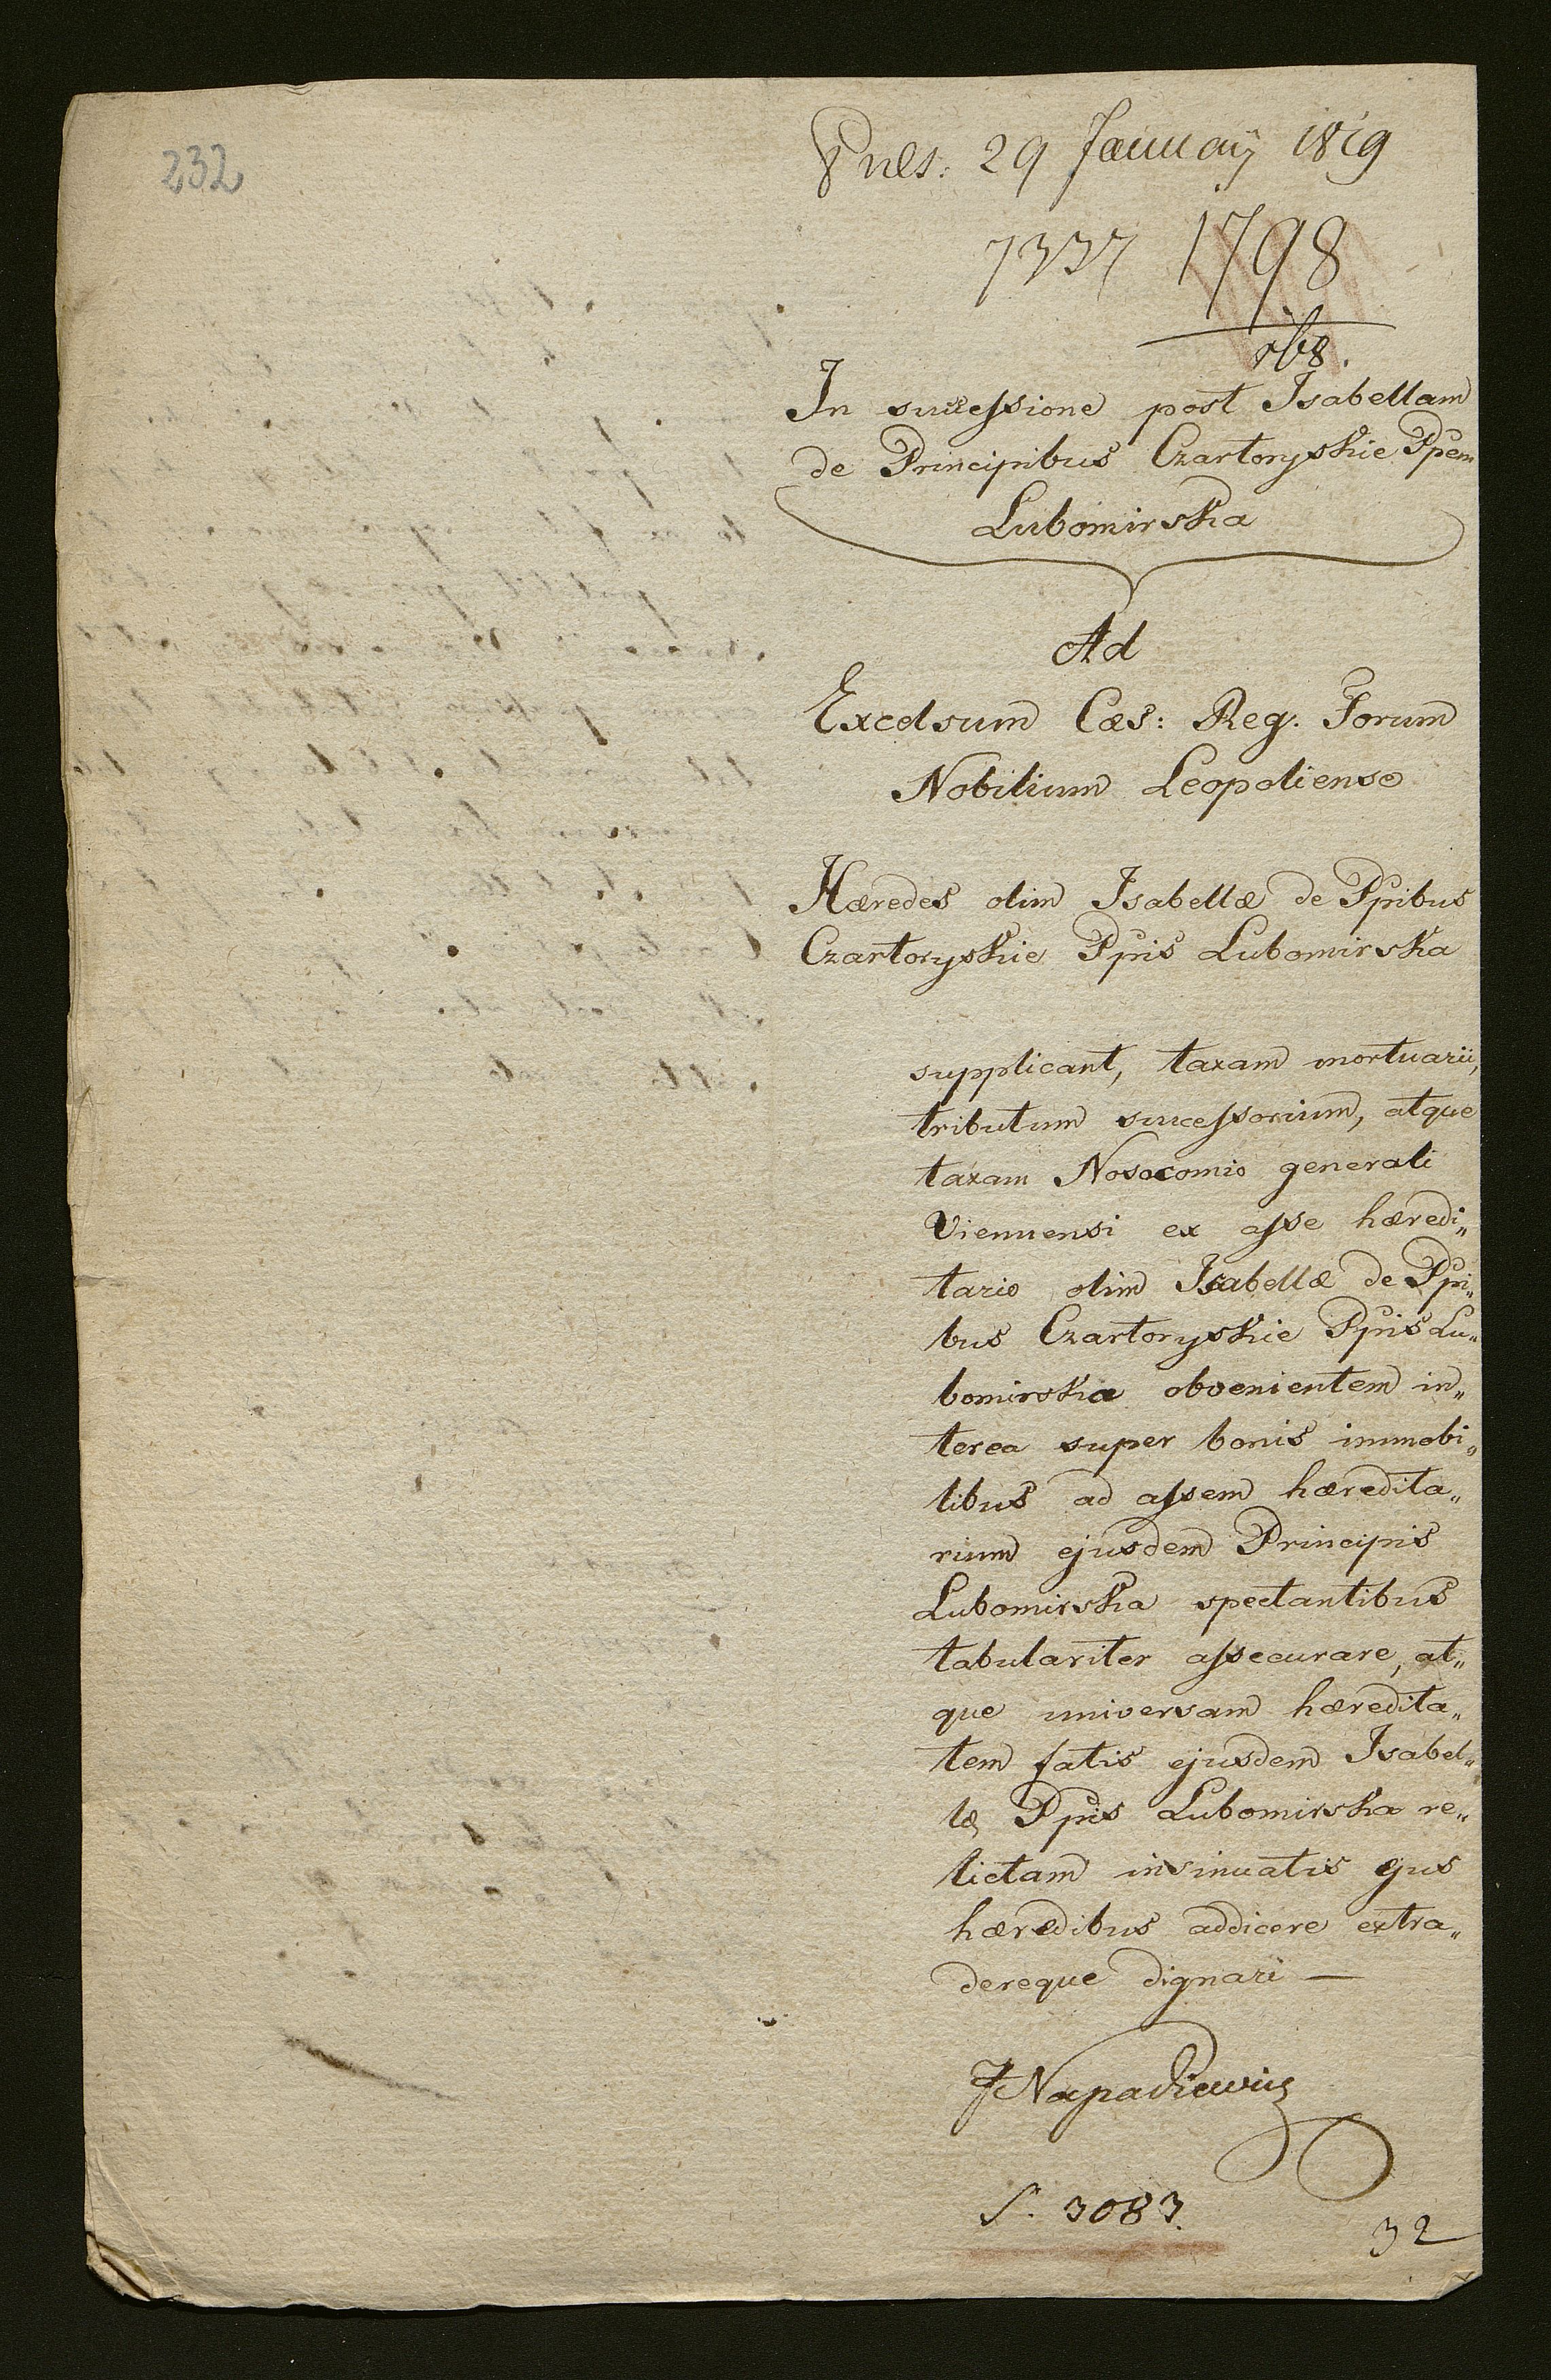 232
Pres: 29 January 1819
7337 1798
In successione post Isabellam
de Principibus Czartoryskie Ppem
Lubomirska
Ad
Excelsum Cæs: Reg. Forum
Nobilium Leopoliense
Hæredes olim Isabellæ de Ppibus
Czartoryskie Ppis Lubomirska
supplicant, taxam mortuarii,
tributum successorium, atque
taxam Nosocomio generali
Viennensi ex asse hæredi„
tario olim Isabellæ de Ppi„
bus Czartoryskie Ppis Lu„
bomirska obvenientem in„
terea super bonis immobi„
libus ad assem hæredita„
rium ejusdem Principis
Lubomirska spectantibus
tabulariter assecurare, at„
que universam hæredita„
tem fatis ejusdem Isabel„
læ Ppis Lubomirska re„
lictam insinuatis ejus
hæredibus addicere extra„
dereque dignari —
JNapadiewicz
S. 3083.
32